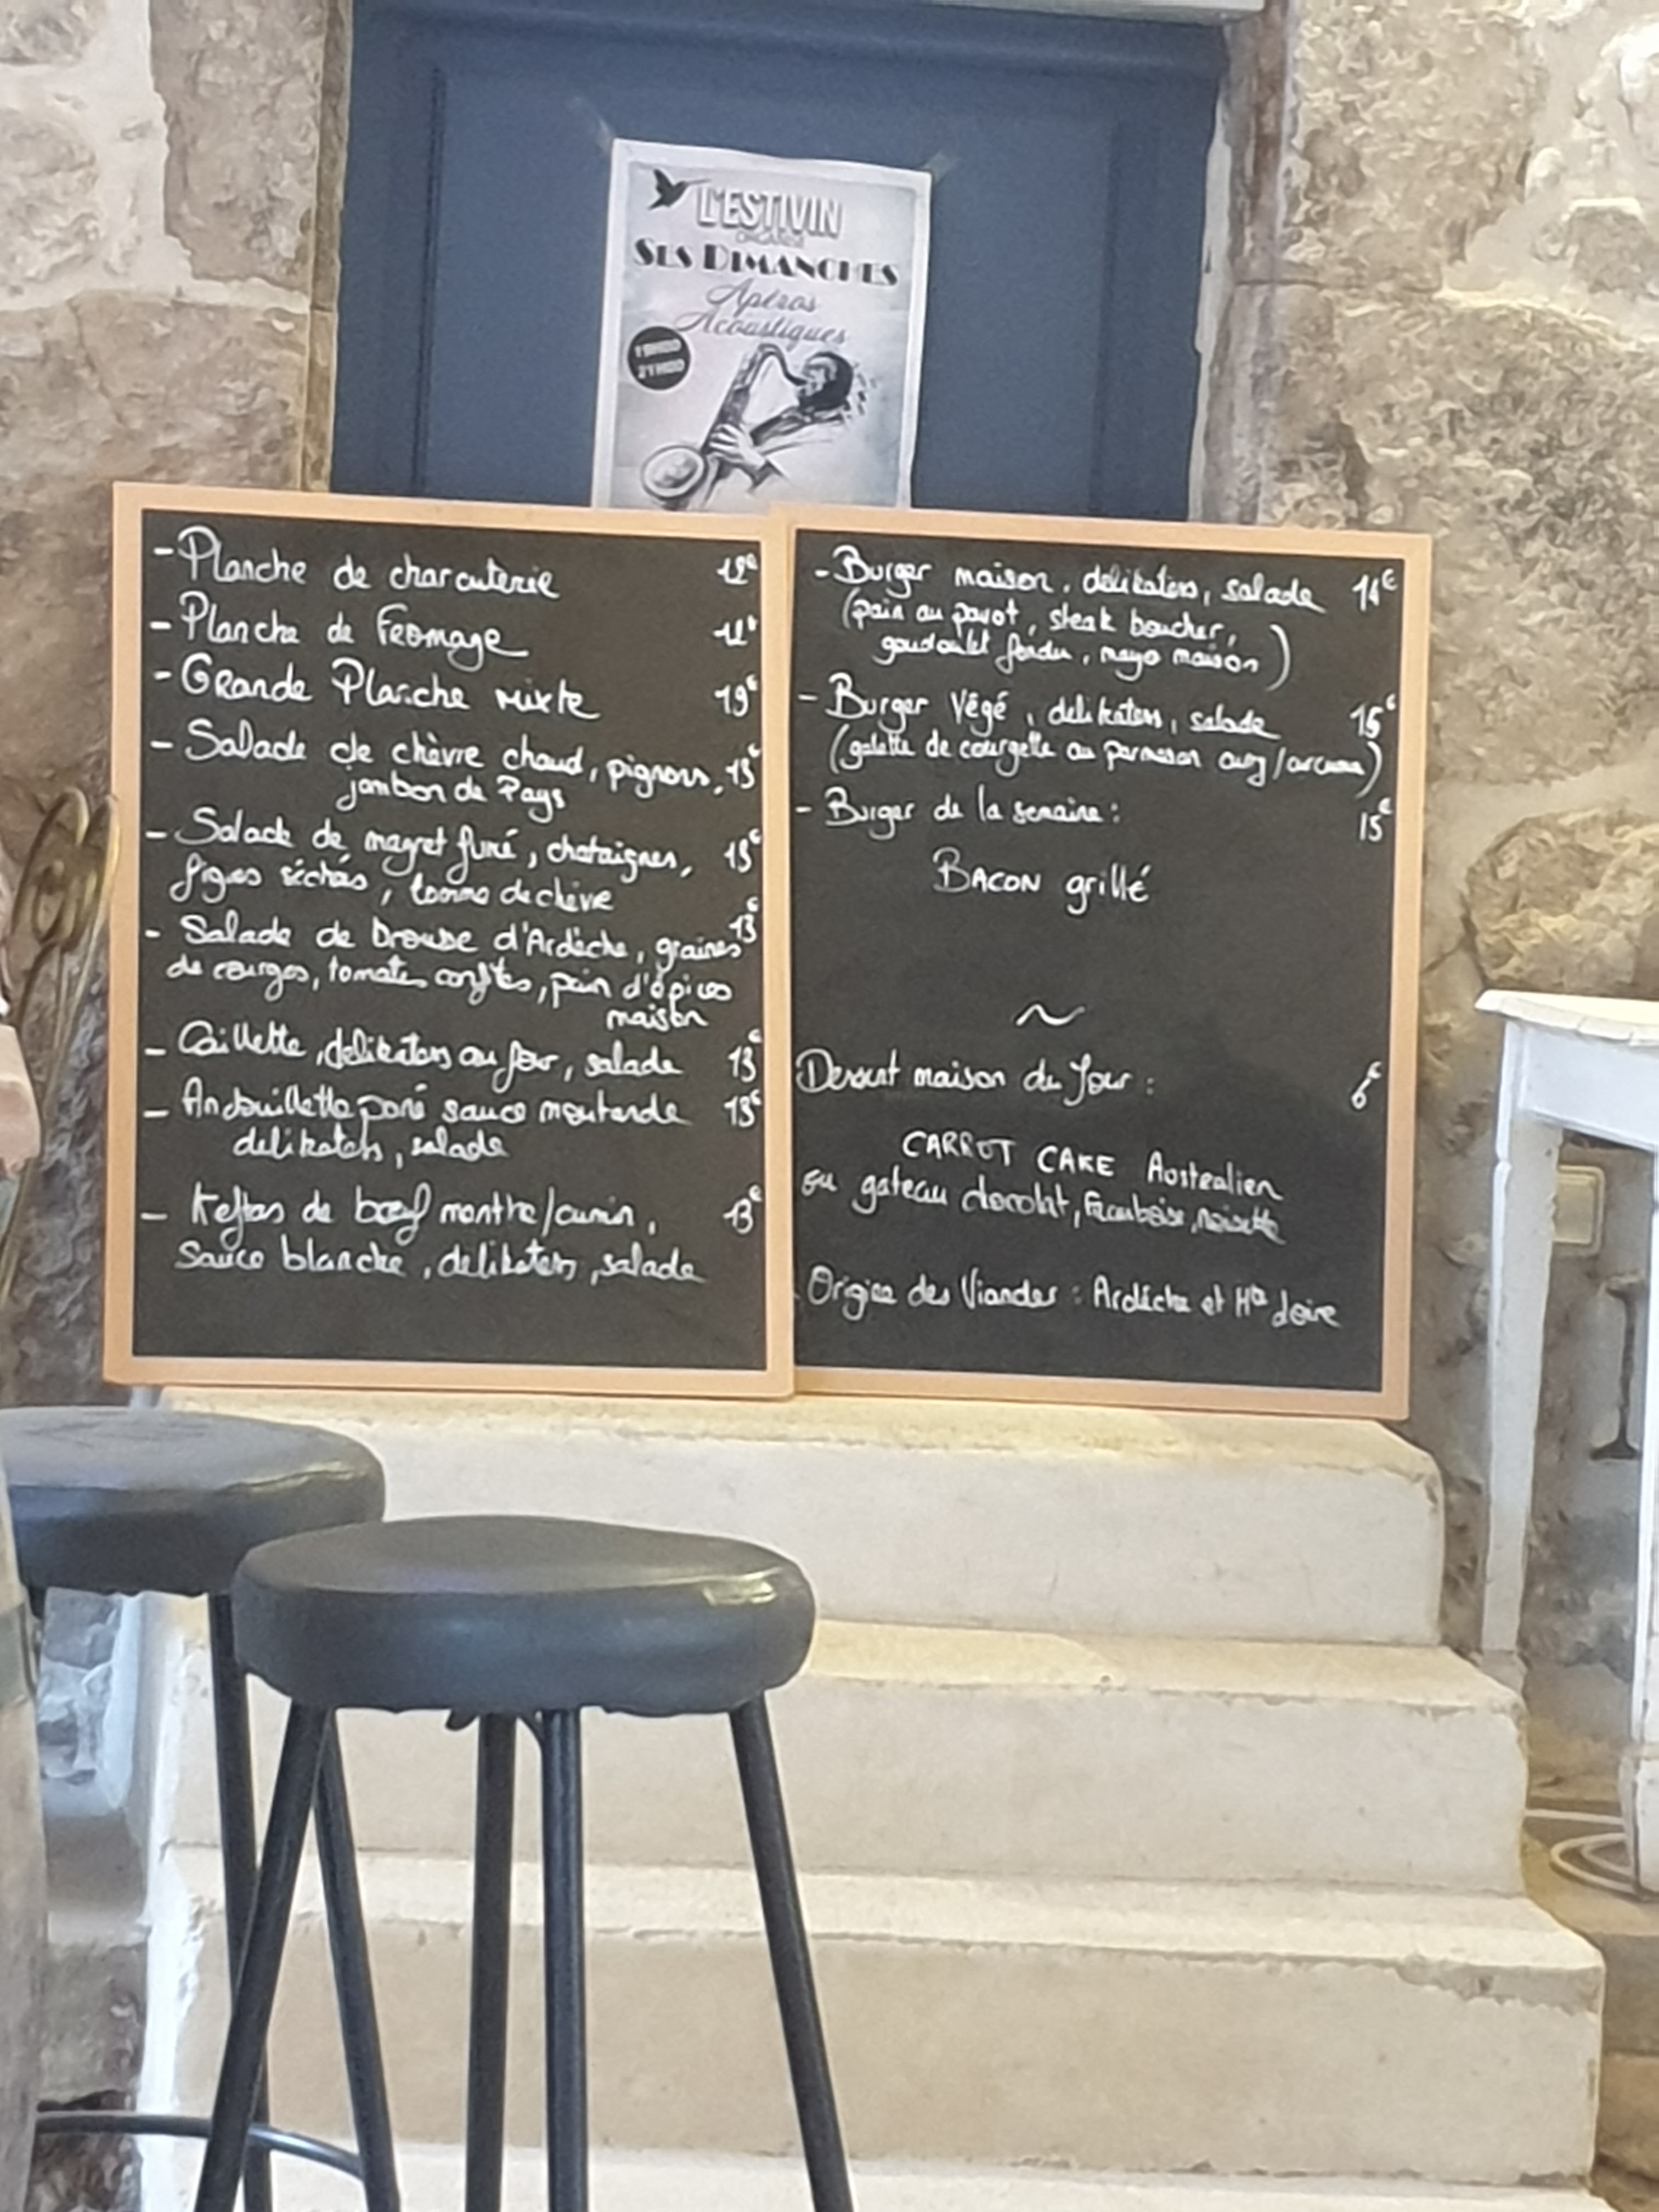 L'ESTIVIN
ORGANISE
SES DIMANCHES
Apéros
Acoustiques
21H00
- Planche de charcuterie 12€
- Planche de Fromage 12€
- Grande Planche mixte 19€
- Salade de chèvre chaud, pignons, 13€
jambon de Pays
- Salade de magret fumé, chataignes, 13€
figues séchés, tomme de chèvre
- Salade de Drouse d'Ardèche, graines 13€
de courges, tomates confites, pain d'épices
maison
- Caillette, delikatess au four, salade 13€
- Andouillette pané sauce moutarde 13€
delikatess, salade
- Keftas de bœuf menthe/cumin, 13€
Sauce blanche, delikatess, salade
- Burger maison, delikatess, salade 14€
(pain au pavot, steak boucher,
goudoulet fondu, mayo maison)
- Burger Végé, delikatess, salade 15€
(galette de courgette au parmesan curry/curcuma)
- Burger de la semaine : 15€
BACON grillé
~
Dessert maison du Jour : 6€
CARROT CAKE Australien
ou gateau chocolat, Framboise, noisette
Origine des Viandes : Ardèche et Hte Loire